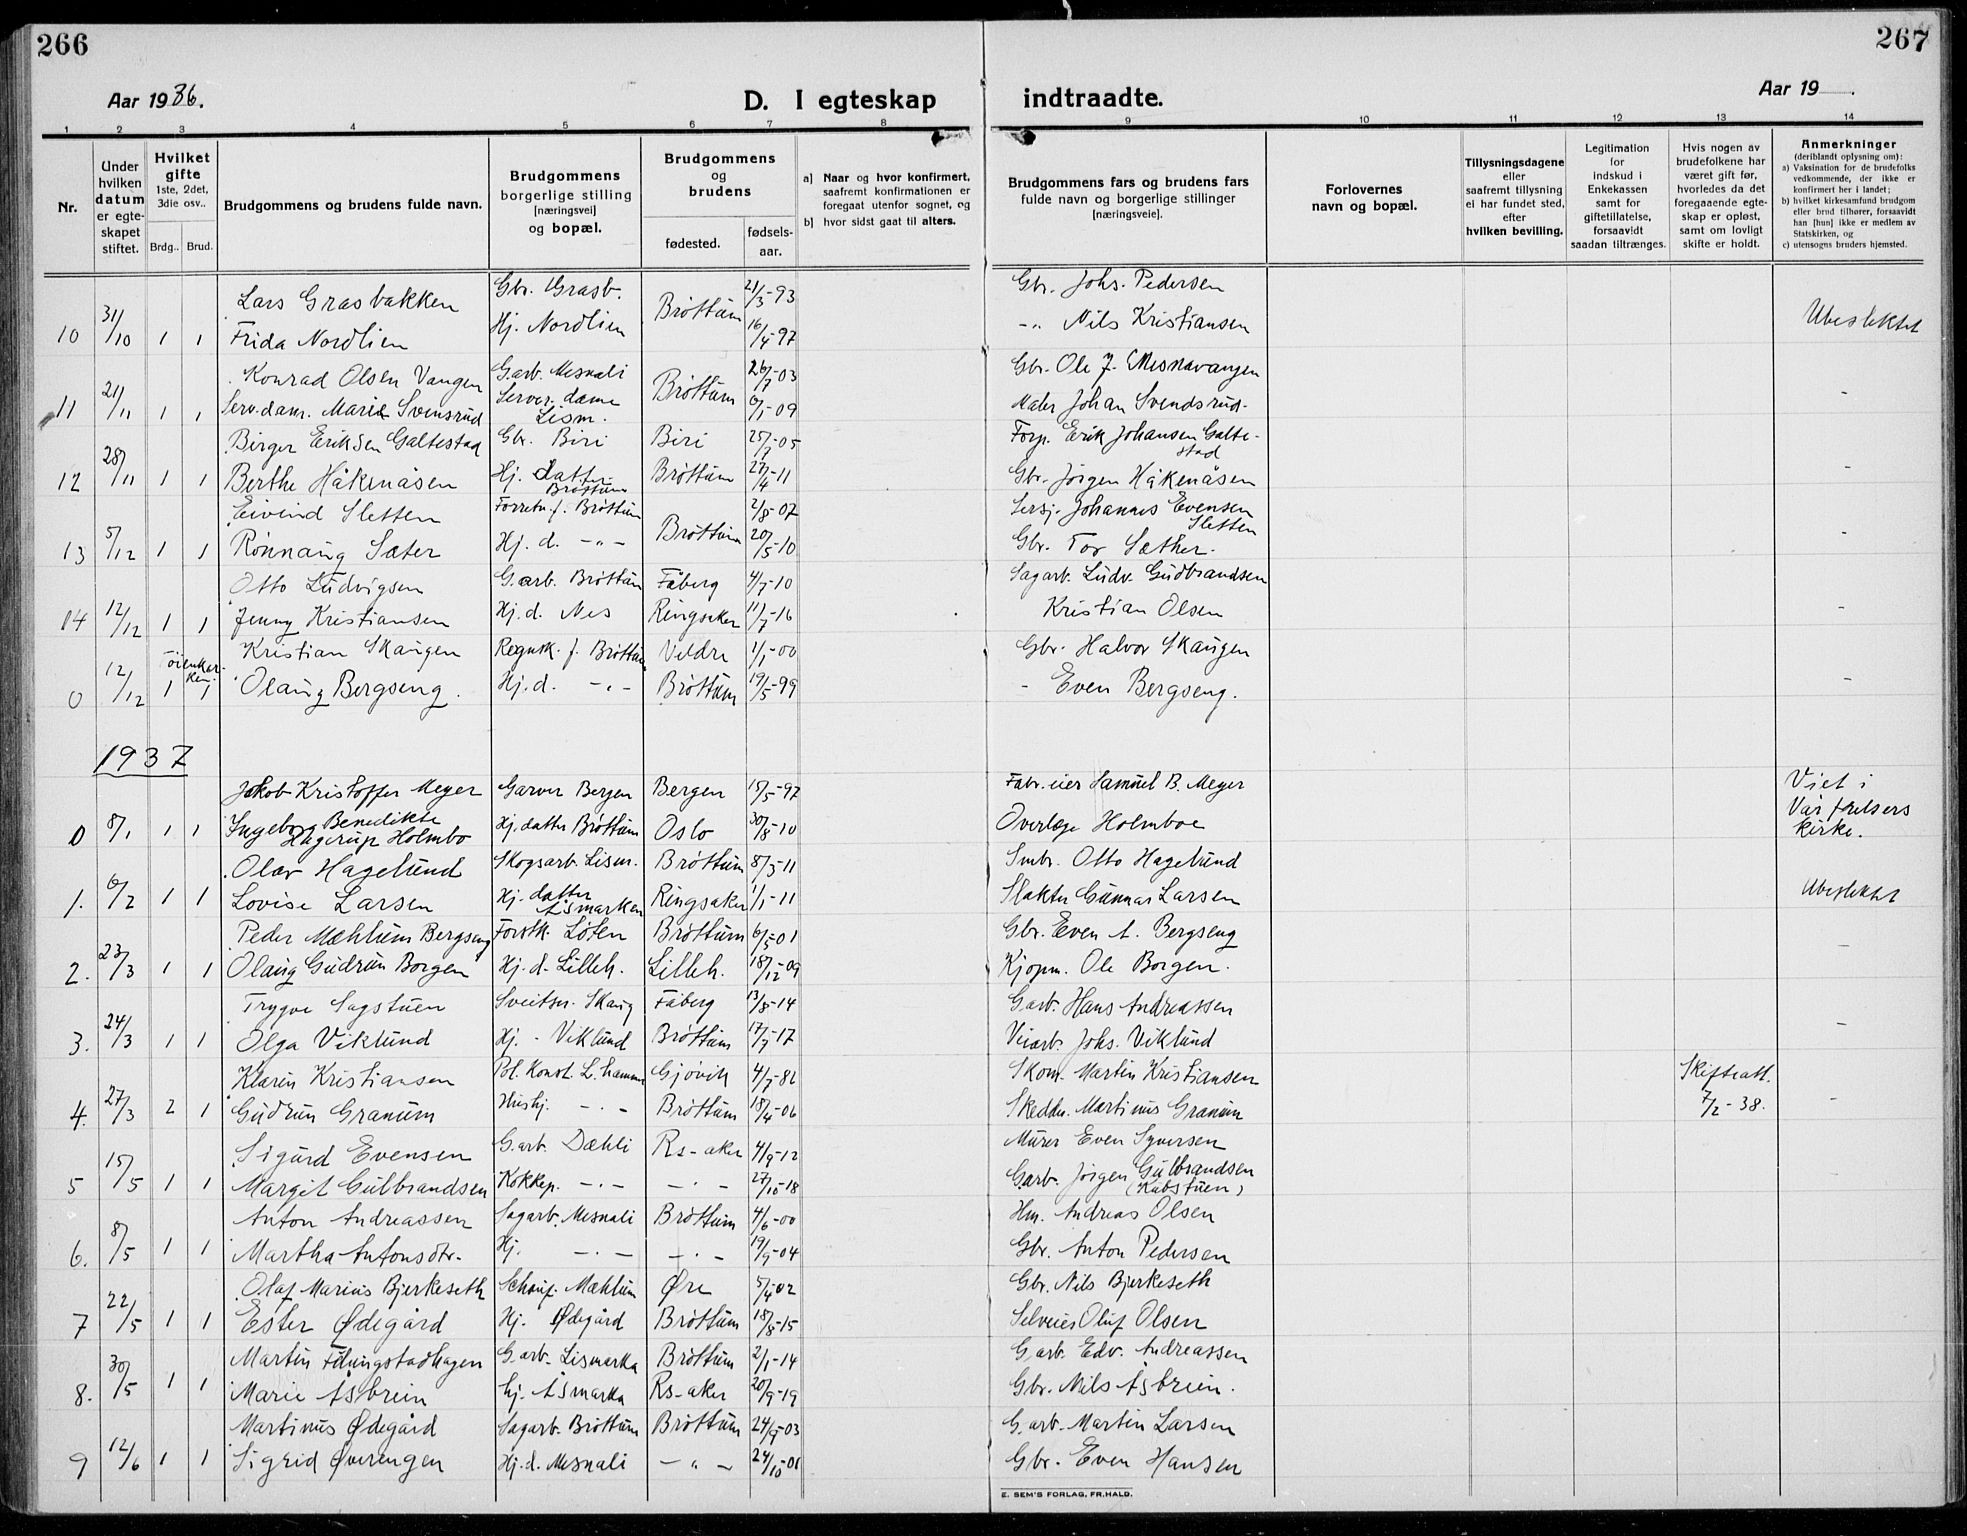 266
267
Aar 1936.
D. I egteskap indtraadte.
Aar 19 .
1 2 3 4 5 6 7 8 9 10 11 12 13 14
Nr.
Under hvilken datum er egteskapet stiftet.
Hvilket gifte 1ste, 2det, 3die osv..
Brdg.. Brud.
Brudgommens og brudens fulde navn.
Brudgommens borgerlige stilling [næringsvei] og bopæl.
Brudgommens og brudens
fødested. fødselsaar.
a) Naar og hvor konfirmert, saafremt konfirmationen er foregaat utenfor sognet, og
b) hvor sidst gaat til alters.
Brudgommens fars og brudens fars fulde navn og borgerlige stillinger [næringsveie].
Forlovernes navn og bopæl.
Tillysningsdagene eller saafremt tillysning ei har fundet sted, efter hvilken bevilling.
Legitimation for indskud i Enkekassen samt for giftetillatelse, forsaavidt saadan tiltrænges.
Hvis nogen av brudefolkene har været gift før, hvorledes da det foregaaende egteskap er opløst, samt om lovligt skifte er holdt.
Anmerkninger (deriblandt oplysning om):
a) Vaksination for de brudefolks vedkommende, der ikke er konfirmert her i landet;
b) hvilket kirkesamfund brudgom eller brud tilhører, forsaavidt han [hun] ikke er medlem av Statskirken, og
c) utensogns bruders hjemsted.
Lars Grasbakken Gbr. Grasb. Brøttum 21/3-93 Gbr. Johs. Pedersen
10 31/10 1 1 Frida Nordlien Hj. Nordlien 16/4-97 -"- Nils Kristiansen Ubeslektet
Konrad Olsen Vangen G.arb. Mesnali Brøttum 26/7-03 Gbr. Ole J. Mesnavangen
11 21/11 1 1 Serv.dam. Marie Svensrud Server. dame Lism. 6/1-09 Maler Johan Svendsrud -
Birger Eriksen Galtestad Gbr. Biri Biri 25/7-05 Forp. Erik Johansen Galtestad
12 28/11 1 1 Berthe Håkenåsen Hj. datter Brøttum Brøttum 27/4-11 Gbr. Jørgen Håkenåsen -
Eivind Sletten Forretn.f. Brøttum Brøttum 2/8-07 Sersj. Johannes Evensen Sletten
13 5/12 1 1 Rønnaug Sæter Hj. d. -"- 20/5-10 Gbr. Tor Sæther. -
Otto Ludvigsen G.arb. Brøttum Fåberg 4/7-10 Sagarb. Ludv. Gudbrandsen
14 12/12 1 1 Jenny Kristiansen Hj. d. Nes Ringsaker 11/7-16 Kristian Olsen -
Kristian Skaugen Regnsk. f. Brøttum Veldre 1/1-00 Gbr. Halvor Skaugen
0 12/12 1 1 Olaug Bergseng. Hj. d. -"- Brøttum 19/5-99 - Even Bergseng. -
1937
Jakob Kristoffer Meyer Garver Bergen Bergen 15/5-97 Fabr. eier Samuel B. Meyer
0 8/1 1 1 Ingeborg Benedikte Hagerup Holmbo Hj. datter Brøttum Oslo 30/8-10 Overlæge Holmboe Viet i Vår frelsers kirke.
Olav Hagelund Skogsarb. Lism. Brøttum 8/3-11 Smbr. Otto Hagelund
1. 6/2 1 1 Lovise Larsen Hj. datter Åsmarken Ringsaker 1/1-11 Slakter Gunnar Larsen Ubeslektet
Peder Mæhlum Bergseng Forstk. Løten Brøttum 6/5-01 Gbr. Even A. Bergseng
2. 23/3 1 1 Olaug Gudrun Borgen Hj. d. Lilleh. Lilleh. 18/12-09 Kjøpm. Ole Borgen. -
Trygve Sagstuen Sveitser. Skaug Fåberg 13/8-14 G.arb. Hans Andreassen
3. 24/3 1 1 Olga Viklund Hj. - Viklund Brøttum 17/7-17 Veiarb. Johs. Viklund -
Klarin Kristiansen Pol. Konst. L.hammer Gjøvik 4/7-86 Skom. Martin Kristiansen Skifteatt.
4. 27/3 2 1 Gudrun Granum Hushj. -"- Brøttum 18/4-06 Skeddm. Martinus Granum 7/2-38. -
Sigurd Evensen G.arb. Dæhli Rs-aker 4/9-12 Murer Even Syversen
5 15/5 1 1 Margit Gulbrandsen Kokkep. -"- -"- 27/10-18 G.arb. Jørgen Gulbrandsen (Kubstuen)
Anton Andreassen Sagarb. Mesnali Brøttum 4/6-00 Hm. Andreas Olsen
6. 8/5 1 1 Martha Antonsdtr. Hj. -"- -"- 19/9-04 Gbr. Anton Pedersen
Olaf Marius Bjerkeseth Schauf. Mæhlum Øre 5/4-02 Gbr. Nils Bjerkeseth
7 22/5 1 1 Ester Ødegård Hj. Ødegård Brøttum 18/8-15 Selveier Oluf Olsen
Martin Fliungstadhagen G.arb. Lismarka Brøttum 2/1-14 G.arb. Edv. Andreassen
8. 30/5 1 1 Marie Åsbrein hj. Åsmarka Rs-aker 20/9-19 Gbr. Nils Åsbrein.
Martinus Ødegård Sagarb. Brøttum Brøttum 24/9-03 G.arb. Martin Larsen
9 12/6 1 1 Sigrid Øverengen Hj. d. Mesnali -"- 24/10-01 Gbr. Even Hansen
E. SEM'S FORLAG, FR.HALD.